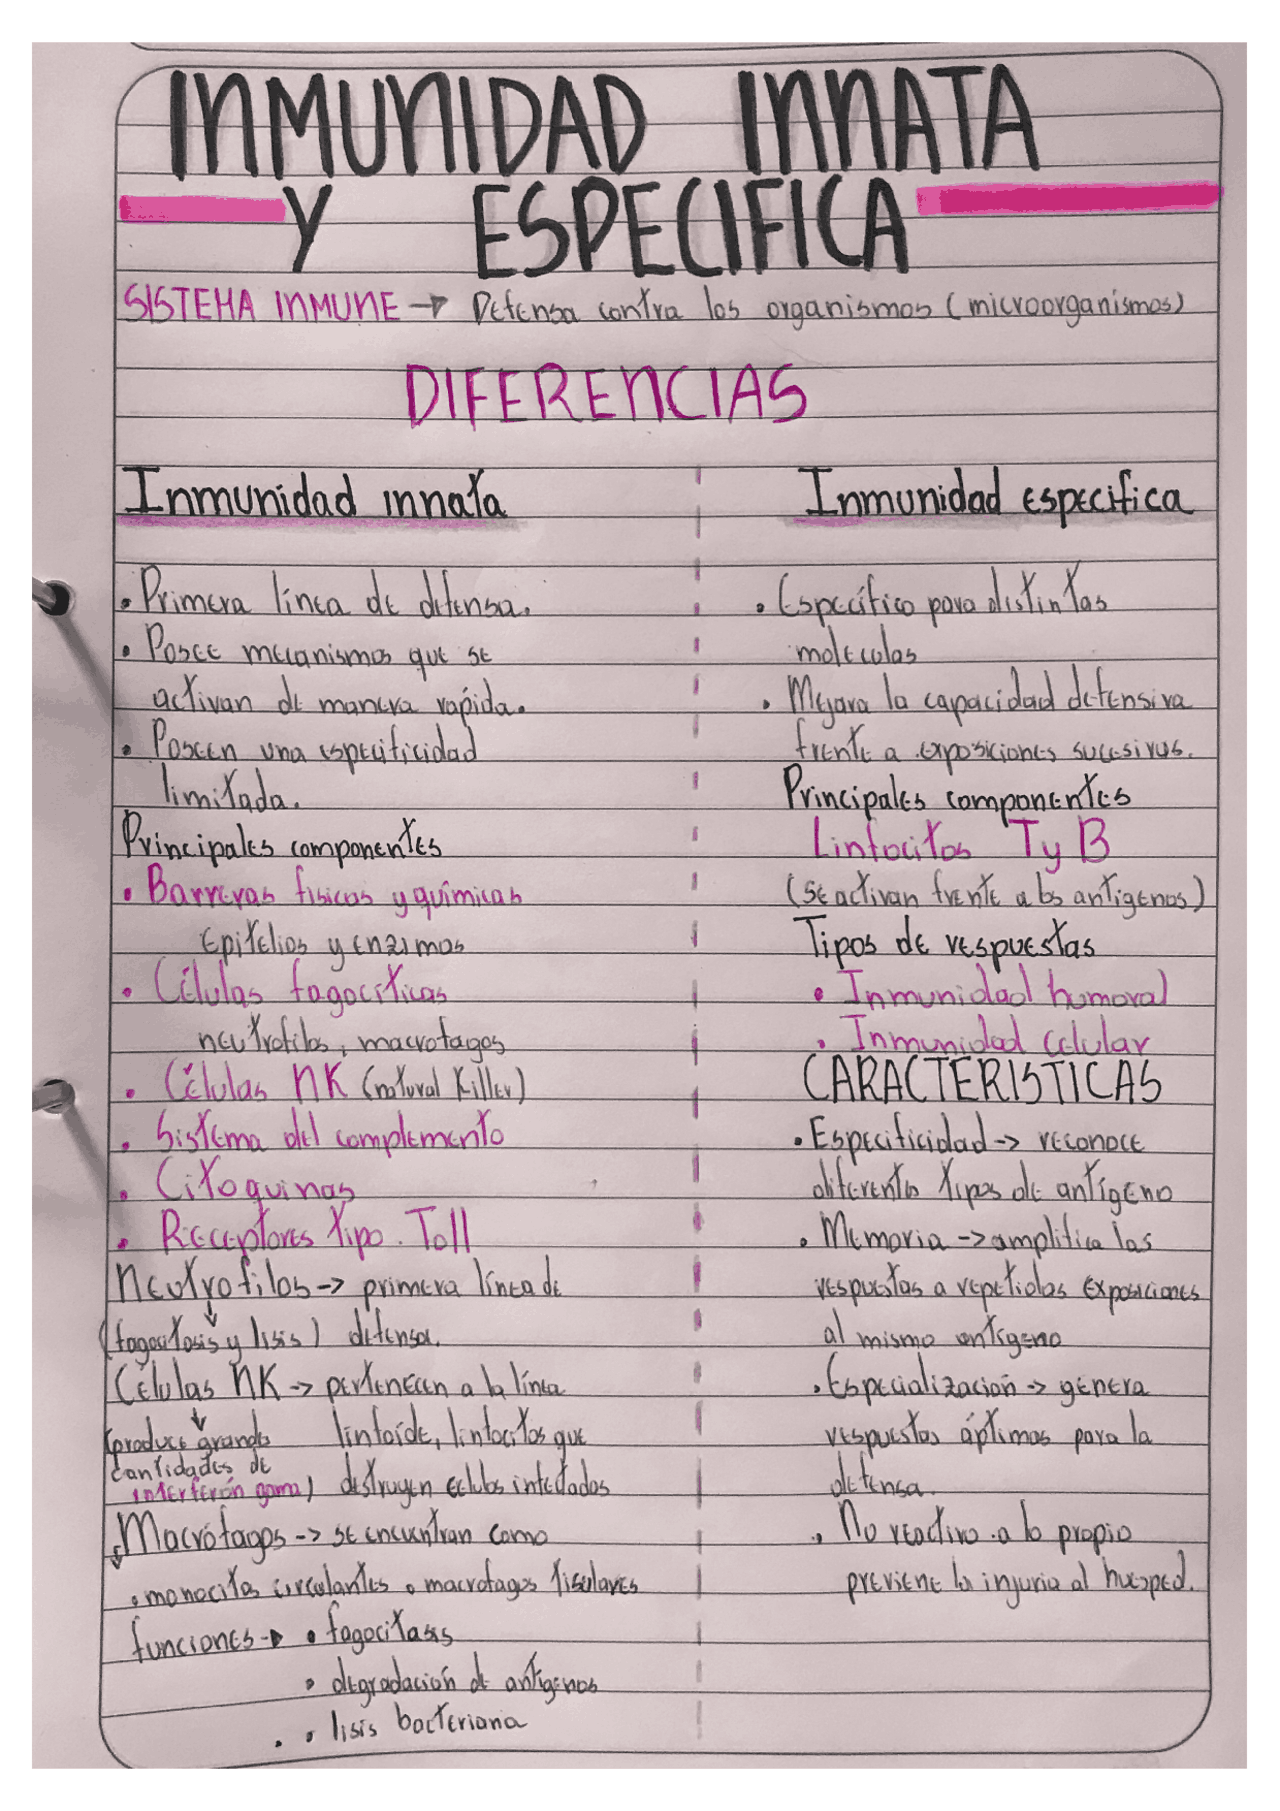 INMUNIDAD INNATA
Y ESPECIFICA
SISTEMA INMUNE → Defensa contra los organismos (microorganismos)
DIFERENCIAS
Inmunidad innata
• Primera línea de defensa.
• Posee mecanismos que se
activan de manera rápida.
• Poseen una especificidad
limitada.
Principales componentes
• Barreras físicas y químicas
Epitelios y enzimas
• Células fagocíticas
neutrofilos, macrofagos
• Células NK (natural Killer)
• Sistema del complemento
• Citoquinas
• Receptores tipo. Toll
Neutrofilos → primera línea de
(fagocitosis y lisis) defensa.
Células NK → pertenecen a la línea
(produce grandes linfoíde, linfocitos que
cantidades de
interferón gama) destruyen celulas infectadas
Macrófagos → se encuentran como
• monocitos circulantes o macrofagos tisulares
funciones → • fagocitosis
• degradación de antígenos
• lisis bacteriana
Inmunidad especifica
• Específico para distintas
moleculas
• Mejora la capacidad defensiva
frente a exposiciones sucesivas.
Principales componentes
Linfocitos T y B
(se activan frente a los antígenos)
Tipos de respuestas
• Inmunidad humoral
• Inmunidad celular
CARACTERISTICAS
• Especificidad → reconoce
diferentes tipos de antígeno
• Memoria → amplifica las
respuestas a repetidas exposiciones
al mismo antígeno
• Especialización → genera
respuestas óptimas para la
defensa.
• No reactivo a lo propio
previene la injuria al huesped.